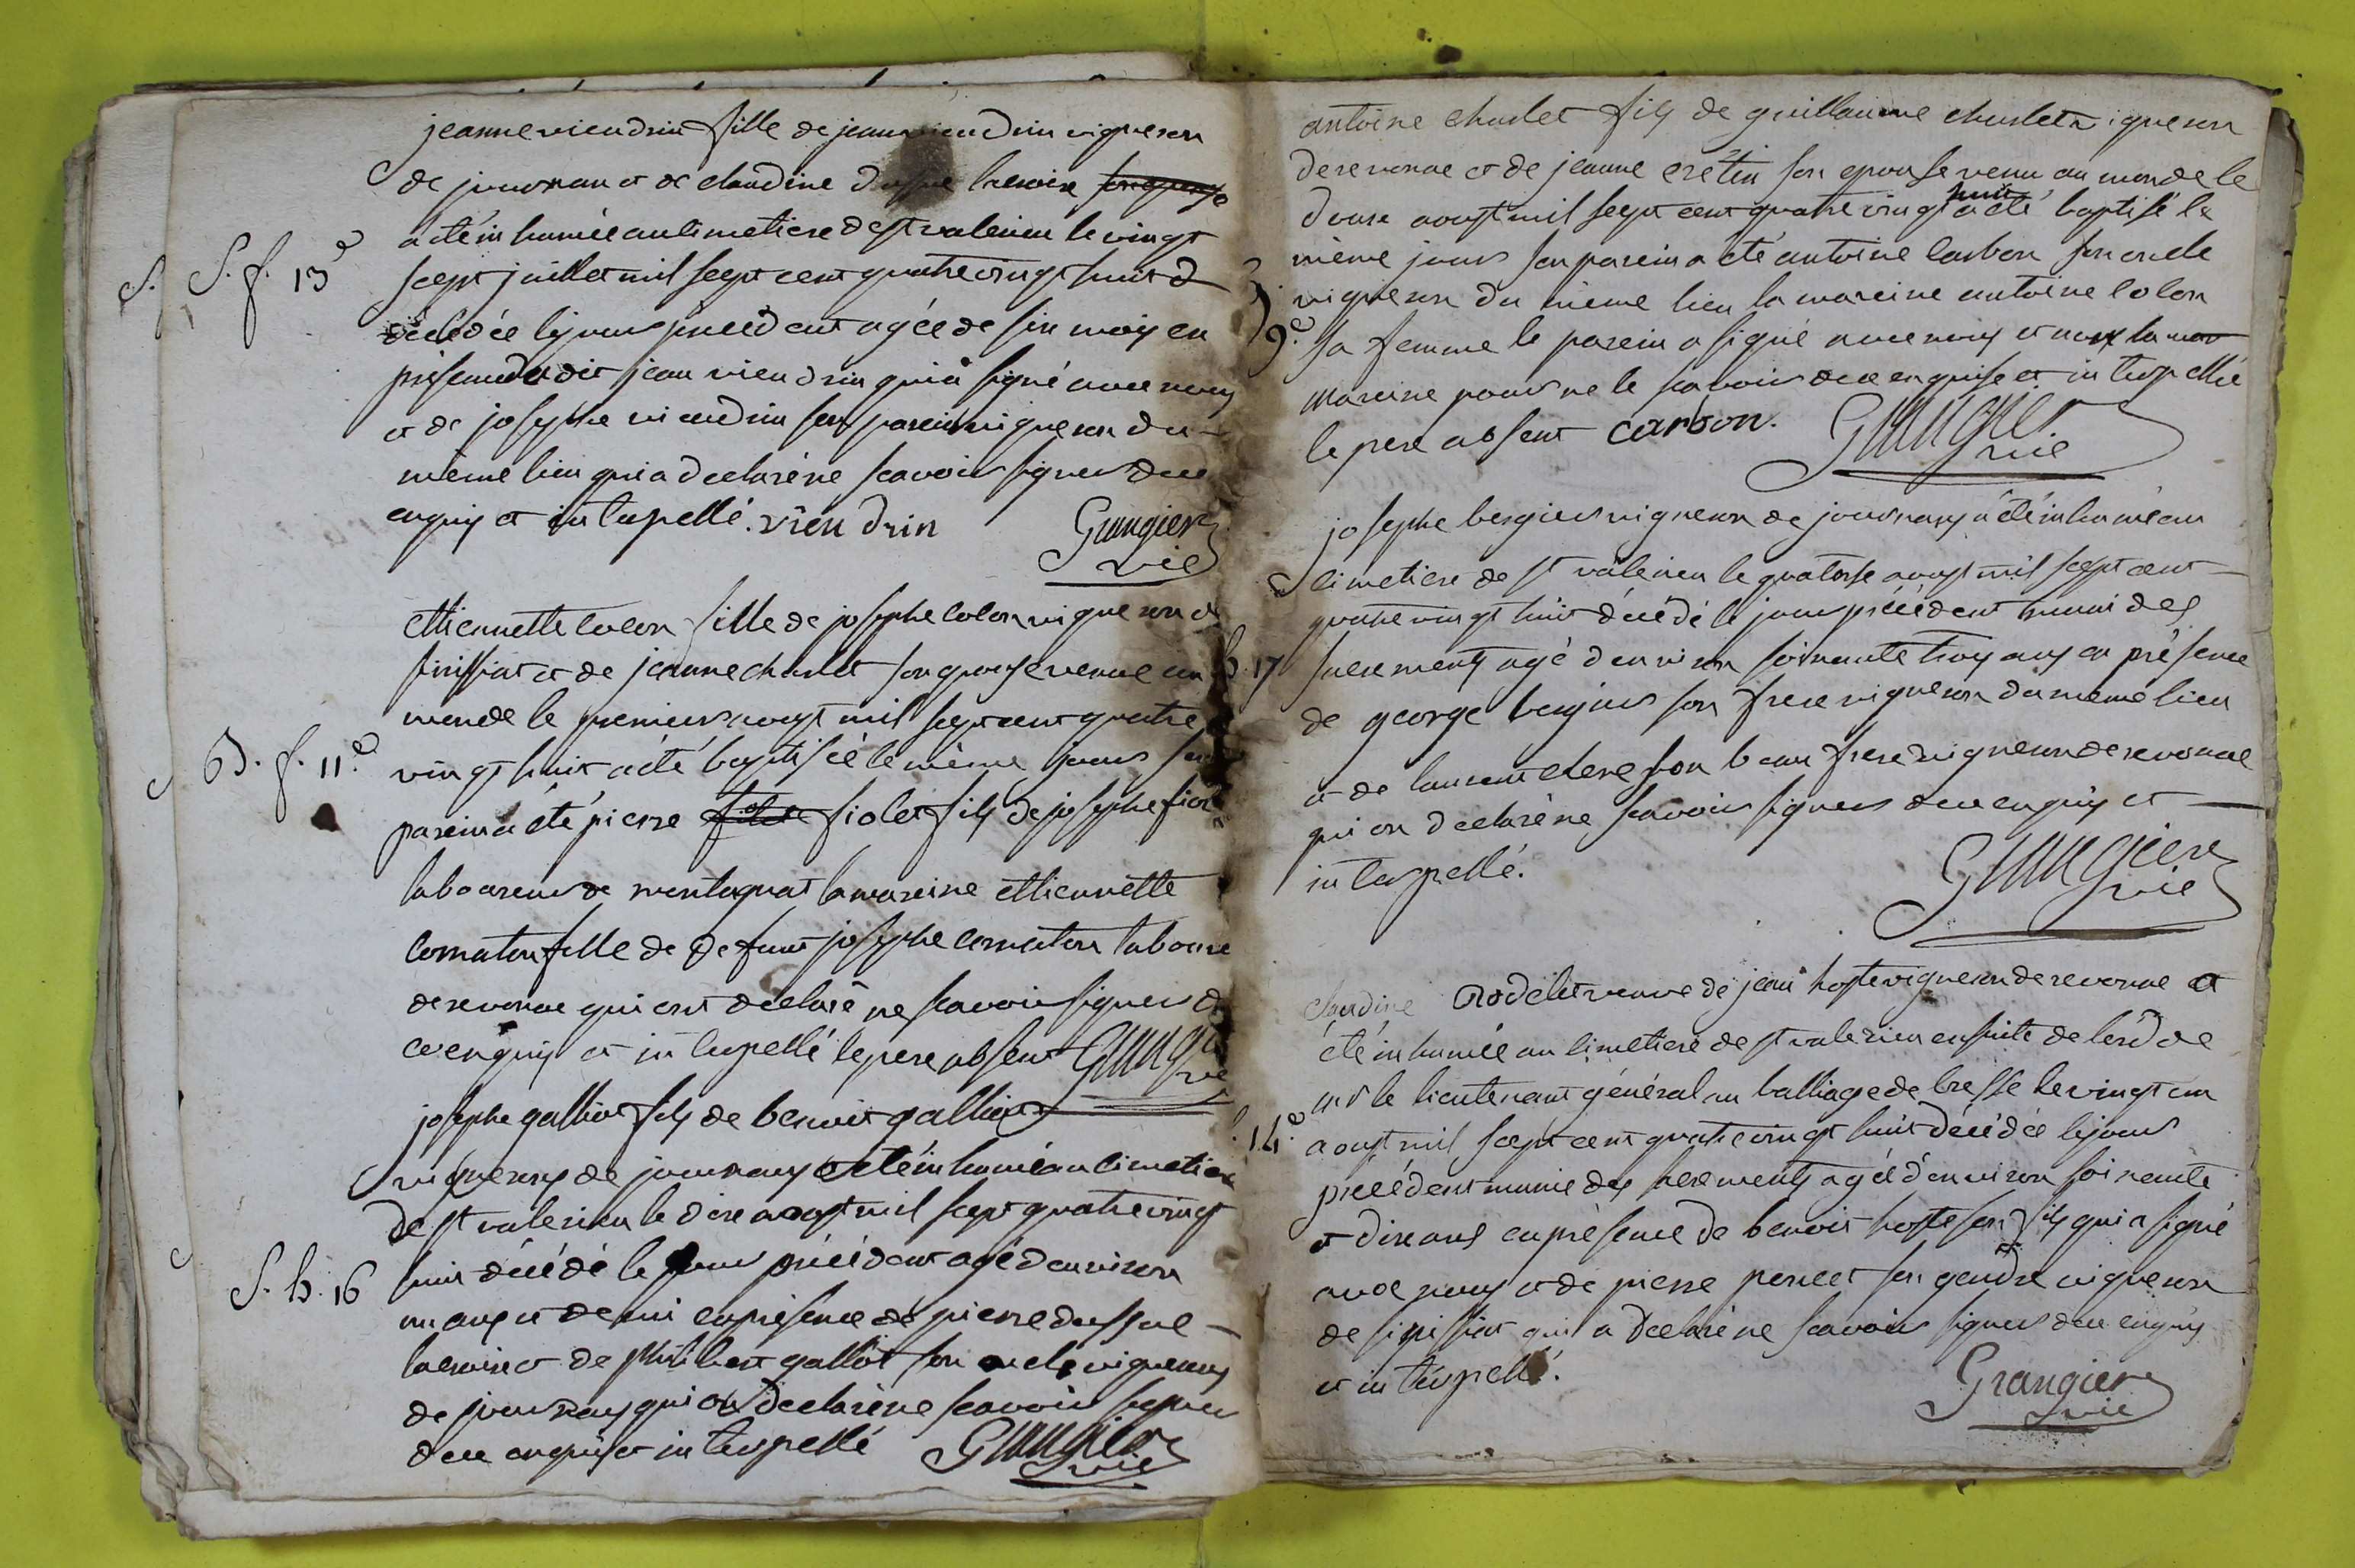 jeanne viendrin fille de jean viendrin vigneron
de journan et de claudine dussue lacroix son epouse
a eté inhumée au cimetiere de st valerien le vingt
S. S. f. 13e
sept juillet mil sept cent quatre vingt huit
décédée le jour précédent agée de six mois en
présence du dit jean viendrin qui a signé avec nous
et de josephe viendrin son parein vigneron du
même lieu qui a declaré ne scavoir signer de ce
enquis et interpellé. vien drin Grangier
vic
ettiennette colon fille de josephe colon vigneron de
sinissiat et de jeanne charlet son epouse venue au
monde le premier aoust mil sept cent quatre
B. f. 11e
vingt huit a eté baptisée le même jour son
parein a eté pierre fiolet fils de josephe fiolet
laboureur de montagnat la mareine ettiennette
comaton fille de defunt josephe comaton laboure
de revonne qui ont declaré ne scavoir signer de
ce enquis et interpellé le pere absent Grangier
vic
josephe gallion fils de benoit gallion
vigneron de journan a eté inhumé au cimetiere
de st valerien le dix aoust mil sept quatre vingt
S. h. 16
huit décédé le jour précédent agé d'environ
un ans et demi en présence de pierre dussue
lacroix et de philibert galliot son oncle vignerons
de journan qui ont declaré ne scavoir signer
de ce enquis et interpellé Grangier
vic
antoine charlet fils de guillaume charlet vigneron
de revonne et de jeanne cretin son epouse venu au monde le
douze aoust mil sept cent quatre vingt huit a eté baptisé le
même jour son parein a eté antoine carbon son oncle
vigneron du même lieu la mareine antoine colon
9e
sa femme le parein a signé avec nous et non la
mareine pour ne le scavoir de ce enquise et interpellée
le pere absent carbon. Grangier
vic
josephe bergier vigneron de journan a eté inhumé au
cimetiere de st valerien le quatorse aoust mil sept cent
quatre vingt huit décédé le jour précédent muni des
h. 17
sacrements agé d'environ soixante trois ans en présence
de george bergier son frere vigneron du même lieu
et de laurent chene son beau frere vigneron de revonne
qui on declaré ne scavoir signer de ce enquis et
interpellé. Grangier
vic
claudine rodelet veuve de jean hoste vigneron de revonne a
été inhumée au cimetiere de st valerien ensuite de l'ord de
mr le lieutenant général au balliage de bresse le vingt un
14e
aoust mil sept cent quatre vingt huit décédée le jour
précédent munie des sacrements agée d'environ soixante
et dix ans en présence de benoit hoste son fils qui a signé
avec nous et de pierre poncet son gendre vigneron
de sinissiat qui a declaré ne scavoir signer de ce enquis
et interpellé. Grangier
vic